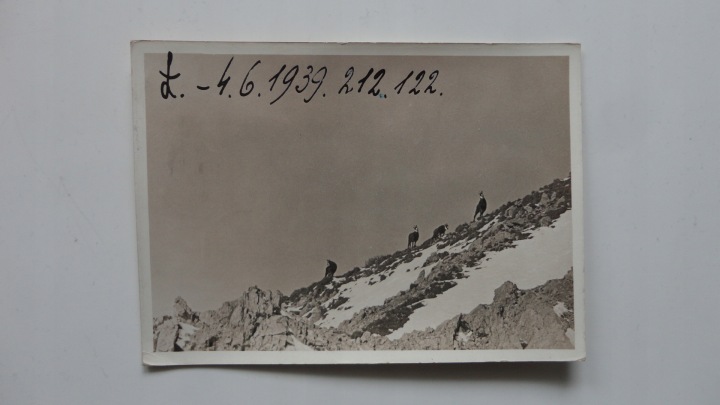 Ł. - 4.6.1939. 212. 122.